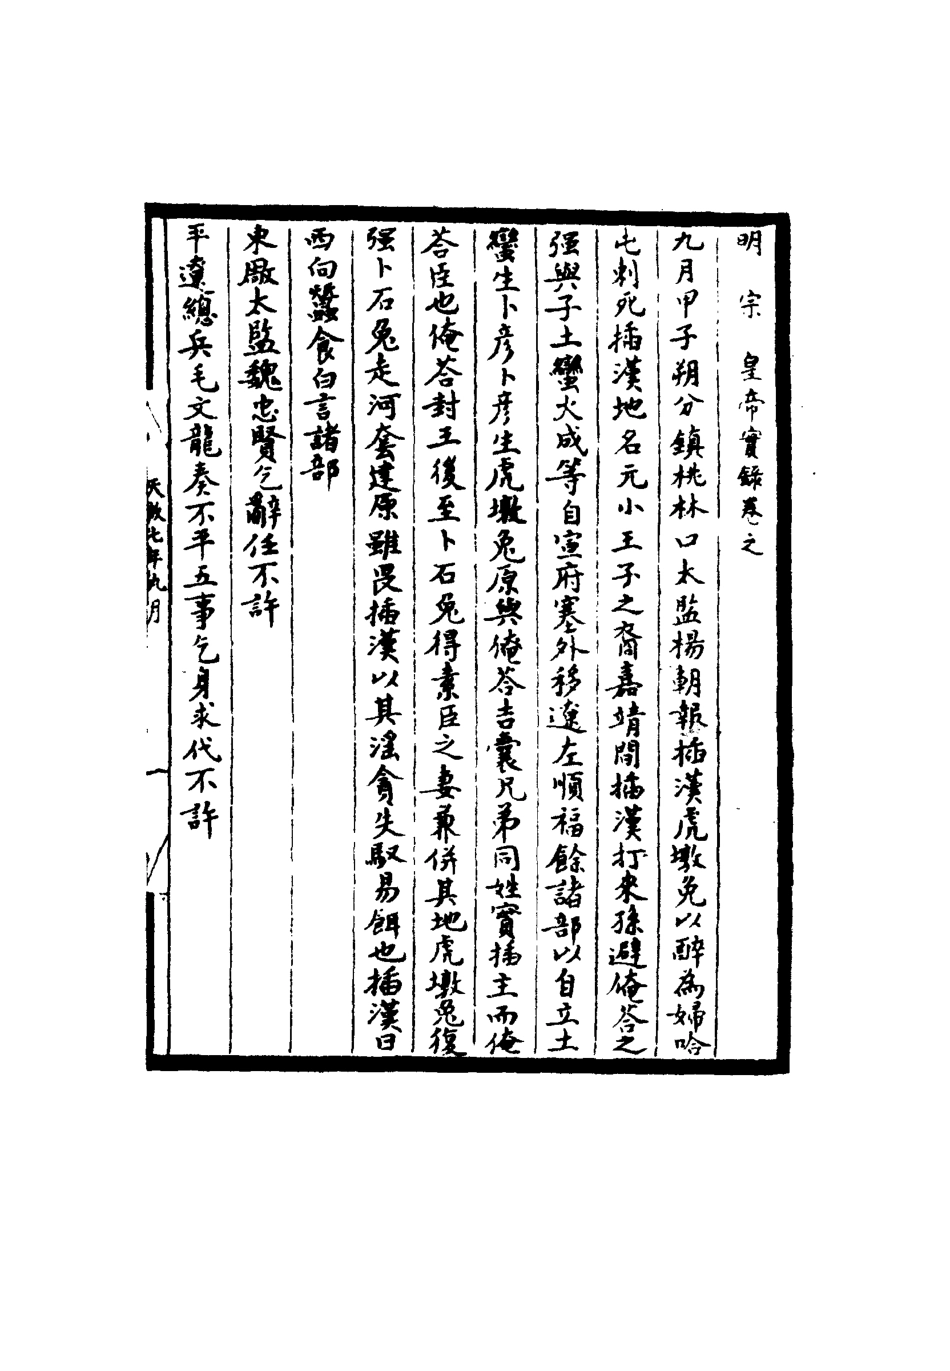 明　宗　皇帝實錄卷之
九月甲子朔分鎮桃林口太監楊朝報插漢虎墩兔以醉為婦哈
屯刺死插漢地名元小王子之裔嘉靖間插漢打來孫避俺答之
强與子土蠻火成等自宣府塞外移遼左順福餘諸部以自立土
蠻生卜彥卜彥生虎墩兔原與俺答吉囊兄弟同姓實插主而俺
答臣也俺答封王後至卜石兔得素臣之妻兼併其地虎墩兔復
强卜石兔走河套建原雖畏插漢以其滛貪失馭易餌也插漢日
西向蠶食白言諸部
東厰太監魏忠賢乞辭任不許
平遼總兵毛文龍奏不平五事乞身求代不許
天啟七年九月
一